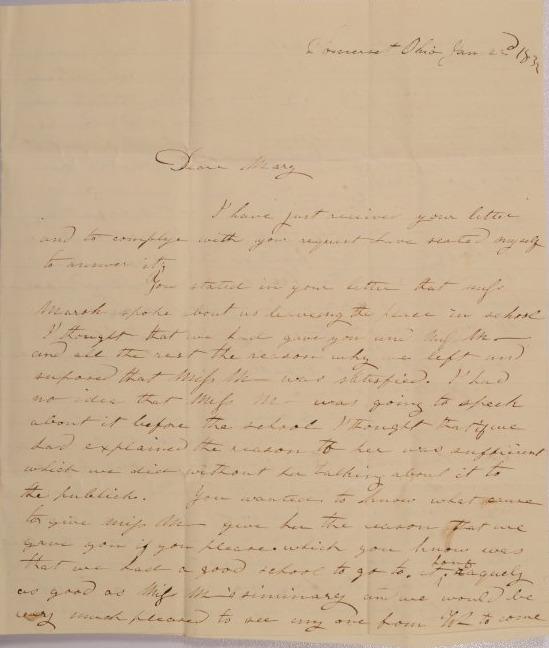 Somerset Ohio Jan 22d 183
Dear Mary
I have just reciever your letter
and to complye with you request have seated myself
to answer it;
You stated in your letter that miss
Marsh spoke about us leaveing the place in school
I thought that we had gave you and Miss M—
and all the rest the reason why we left and
suposed that Miss M— was satisfied. I had
no idea that Miss M— was going to speek
about it before the school I thought that if we
had explained the reason to her was sufficient
which we did without her talking about it to
the publick. You wanted to know what
to give miss M— give her the reason that we
gave you if you please. which you know was
that we had a good school to go to. it, home
as good as Miss M—'s siminary and we would be
very much pleased to see any one from to come